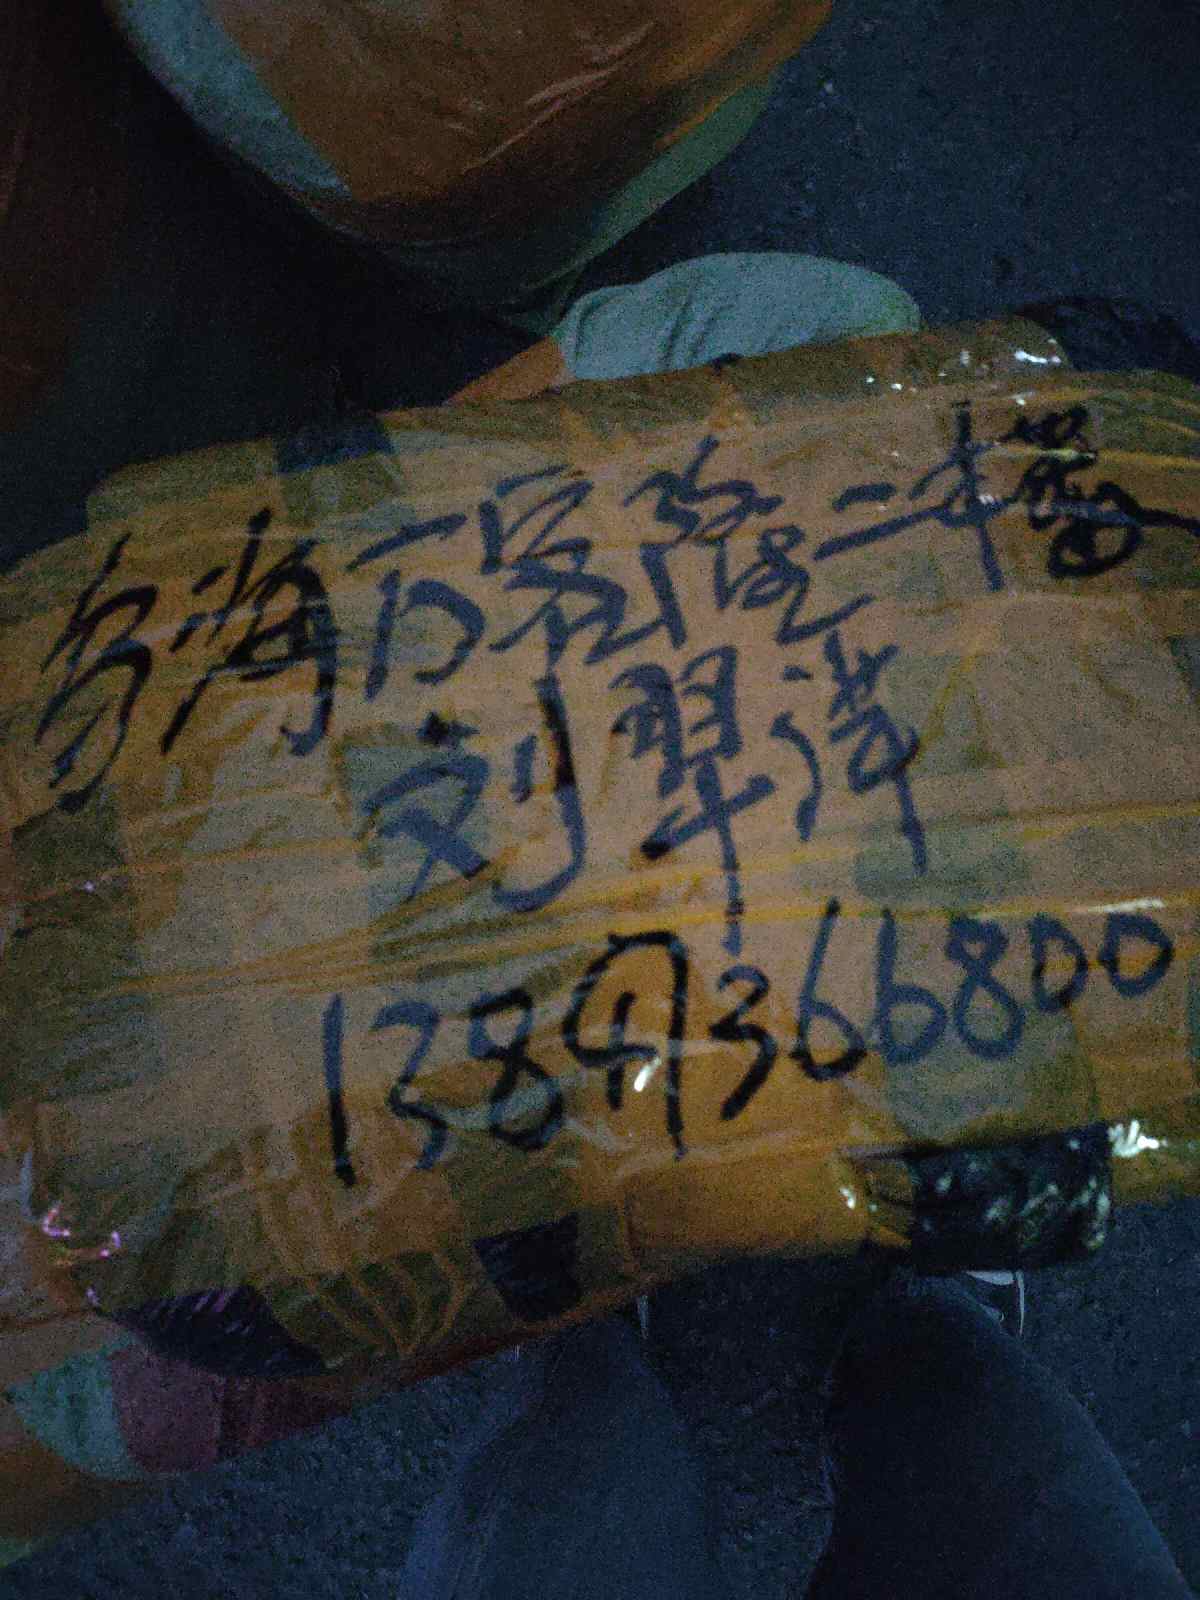 乌海万客隆二楼
刘翠萍
13847366800